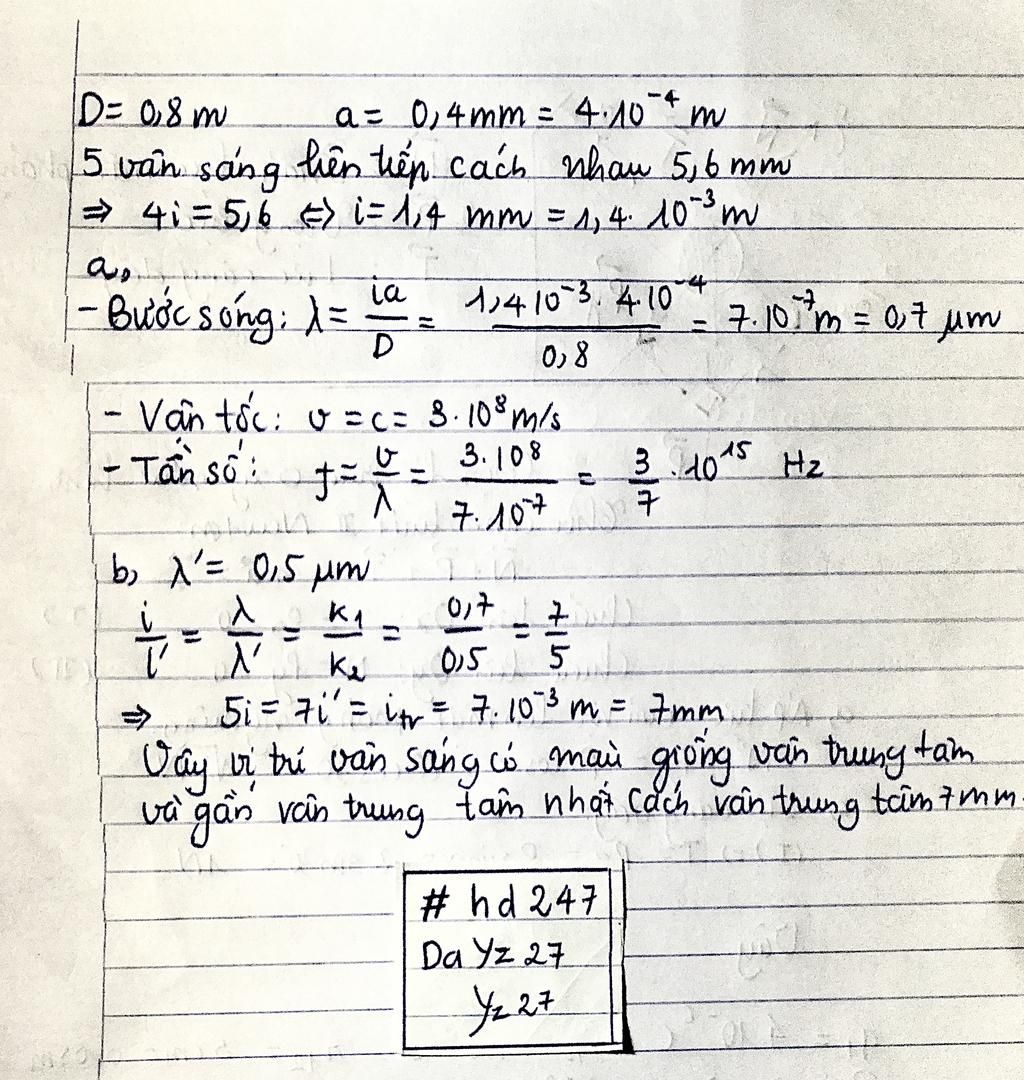 D= 0,8 m a= 0,4mm = 4.10⁻⁴ m
5 vân sáng liên tiếp cách nhau 5,6 mm
⇒ 4i = 5,6 ⇔ i = 1,4 mm = 1,4. 10⁻³ m
a,
- Bước sóng: λ = ia/D = 1,4 10⁻³. 4.10⁻⁴/0,8 = 7.10⁻⁷ m = 0,7 μm
- Vận tốc: v = c = 3.10⁸ m/s
- Tần số: f = v/λ = 3.10⁸/7.10⁻⁷ = 3/7 .10¹⁵ Hz
b, λ' = 0,5 μm
i/i' = λ/λ' = k₁/k₂ = 0,7/0,5 = 7/5
⇒ 5i = 7i' = iₜᵣ = 7.10⁻³ m = 7mm
Vậy vị trí vân sáng có màu giống vân trung tâm
và gần vân trung tâm nhất cách vân trung tâm 7 mm.
# hd 247
Da Yz 27
Yz 27